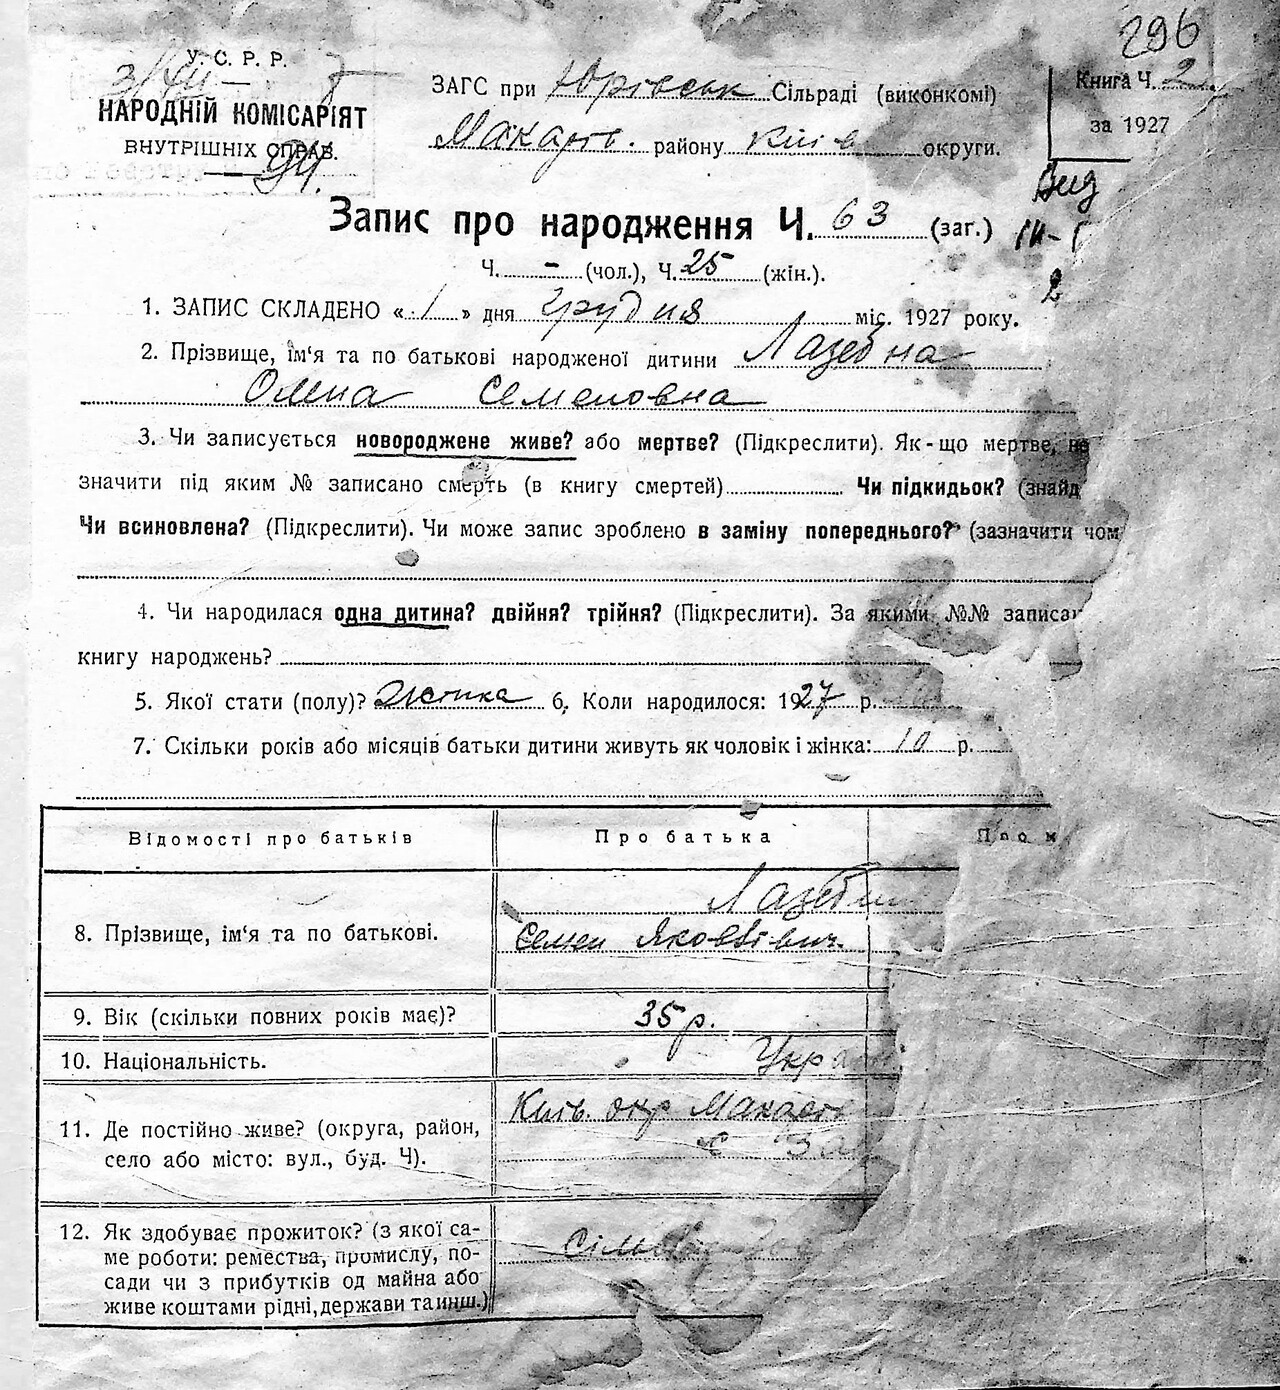 296
У. С. Р. Р.
НАРОДНІЙ КОМІСАРІЯТ
ВНУТРІШНІХ СПРАВ.
ЗАГС при Юрівськ Сільраді (виконкомі)
Макарів. району Київ округи.
Книга Ч. 2
за 1927
Запис про народження Ч. 63 (заг.)
Ч. - (чол.), Ч. 25 (жін.).
1. ЗАПИС СКЛАДЕНО « 1 » дня грудня міс. 1927 року.
2. Прізвище, ім‘я та по батькові народженої дитини Лазебна
Олена Семеновна
3. Чи записується новороджене живе? або мертве? (Підкреслити). Як-що мертве,
значити під яким № записано смерть (в книгу смертей) Чи підкидьок? (знайд
Чи всиновлена? (Підкреслити). Чи може запис зроблено в заміну попереднього? (зазначити чом
4. Чи народилася одна дитина? двійня? трійня? (Підкреслити). За якими №№ записа
книгу народжень?
5. Якої стати (полу)? 6. Коли народилося: 1927 р.
7. Скільки років або місяців батьки дитини живуть як чоловік і жінка: 10 р.
Відомості про батьків Про батька Про
8. Прізвище, ім‘я та по батькові. Лазебн
Семен Яковівич
9. Вік (скільки повних років має)? 35 р.
10. Національність. Украї
11. Де постійно живе? (округа, район,
село або місто: вул., буд. Ч). Київ. окр Макарів
с За
12. Як здобуває прожиток? (з якої са-
ме роботи: ремества, промислу, по-
сади чи з прибутків од майна або
живе коштами рідні, держави та инш.)